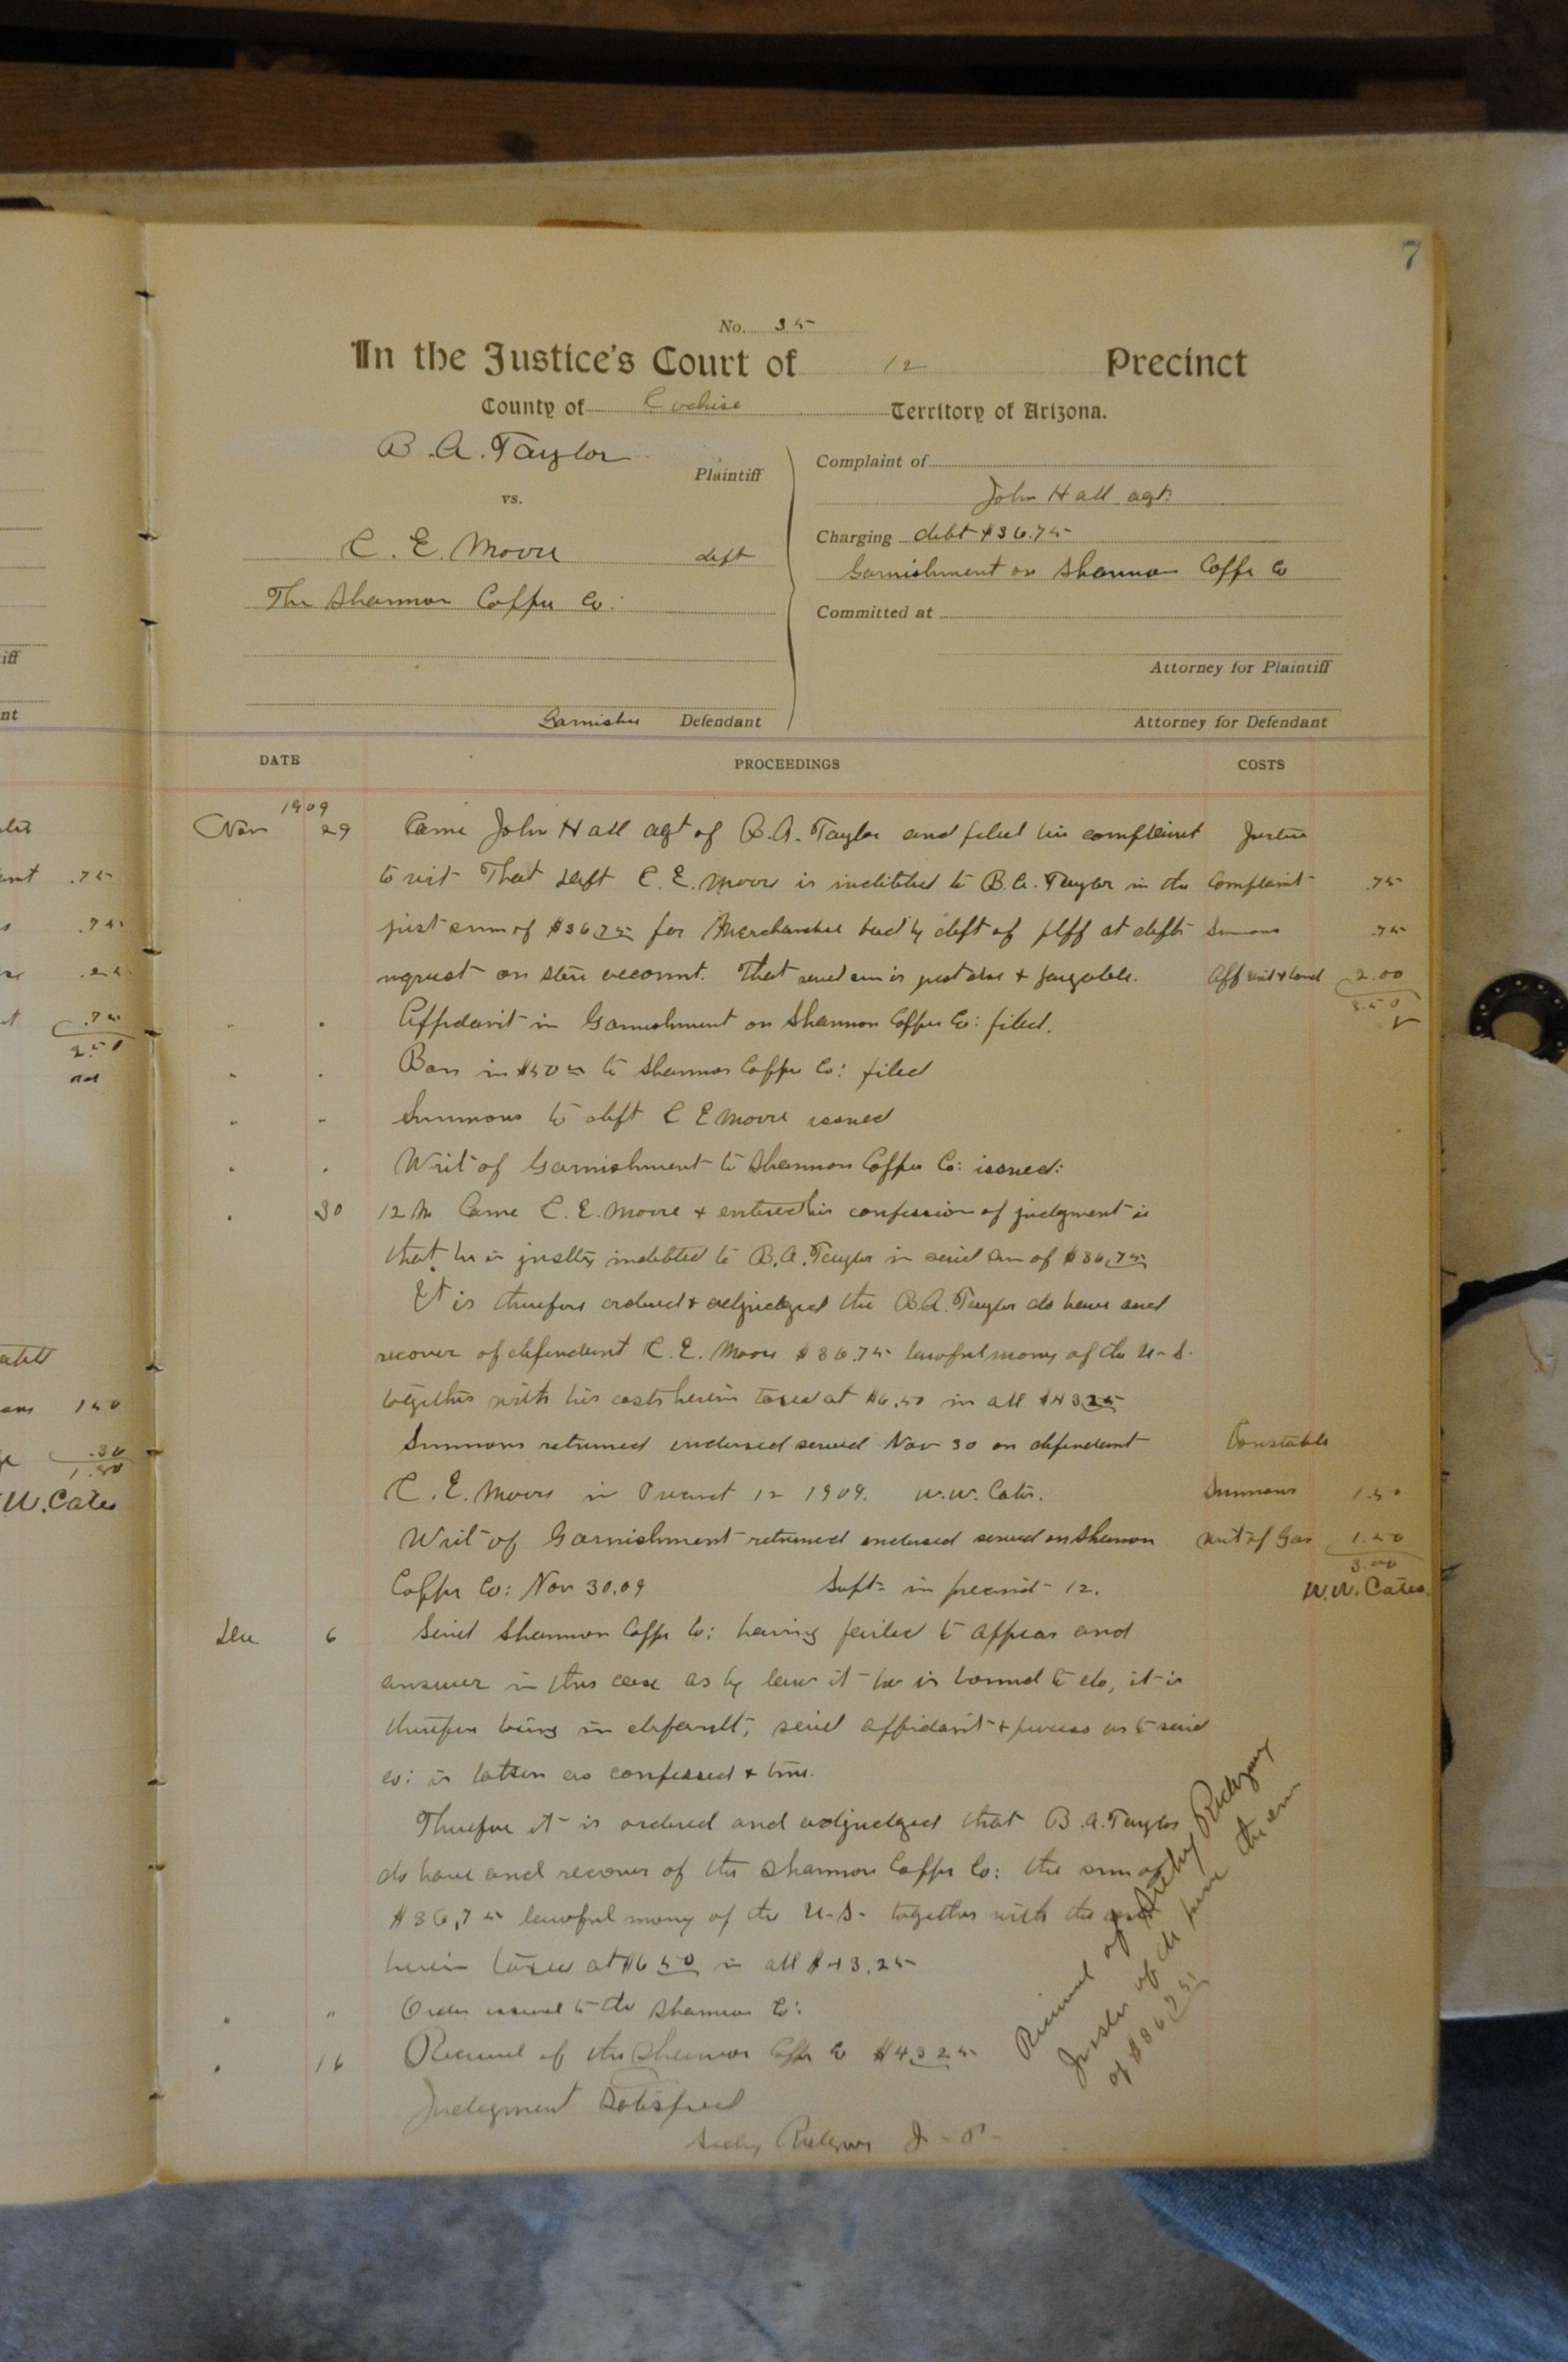 7
No. 35
In the Justice's Court of 12 Precinct
County of Cochise Territory of Arizona.
B. A. Taylor
Plaintiff
vs.
C. E. Moore deft
The Shannon Copper Co:
Garnishee Defendant
Complaint of
John Hall agt.
Charging debt $36.75
Garnishment on Shannon Copper Co
Committed at
Attorney for Plaintiff
Attorney for Defendant
DATE PROCEEDINGS COSTS
1909
Nov 29 Came John Hall agt of B.A. Taylor and filed his complaint Justice
to wit That deft C. E. Moore is indebted to B.A. Taylor in the Complaint .75
just sum of $36.75 for Merchandise by deft of plff at defts Summons .75
request on store account. That said sum is just due & payable. Aff 2.00
3.50
" " Affidavit in Garnishment on Shannon Copper Co: filed.
" " in $50 to Shannon Copper Co: filed
" " Summons to deft C E Moore issued
" " Writ of Garnishment to Shannon Copper Co: issued:
" 30 12 M Came C. E. Moore & entered his confession of judgment is
that he is justly indebted to B.A. Taylor in said sum of $36.75
It is therefore ordered & adjudged the B.A. Taylor do have and
recover of defendant C. E. Moore $36.75 lawful money of the U-S.
together with his costs herein taxed at $6.50 in all $43.25
Summons returned endorsed served Nov 30 on defendant Constable
C. E. Moore in Precinct 12 1909. W.W. Cates. Summons 1.50
Writ of Garnishment returned endorsed served on Shannon Writ of Gar 1.50
3.00
Copper Co: Nov 30.09 Supt: in precinct 12. W.W. Cates.
Dec 6 Said Shannon Copper Co: having failed to appear and
answer in this case as by law it is bound to do, it is
therefore being in default, said affidavit & process as to said
co: is taken as confessed & true.
Therefore it is ordered and adjudged that B.A. Taylor
do have and recover of the Shannon Copper Co: the sum of
$36,75 lawful money of the U-S- together with the costs
herein taxed at $6.50 in all $43.25
" " Order issued to the Shannon Co:
" 16 Received of the Shannon Copper Co $43.25
Judgment Satisfied
Ridgway J-P-
Received of Ridgway
Justice of the
of $36.75
iff
nt
.75
.75
.75
2.50
1.50
.30
1.80
W.W. Cates